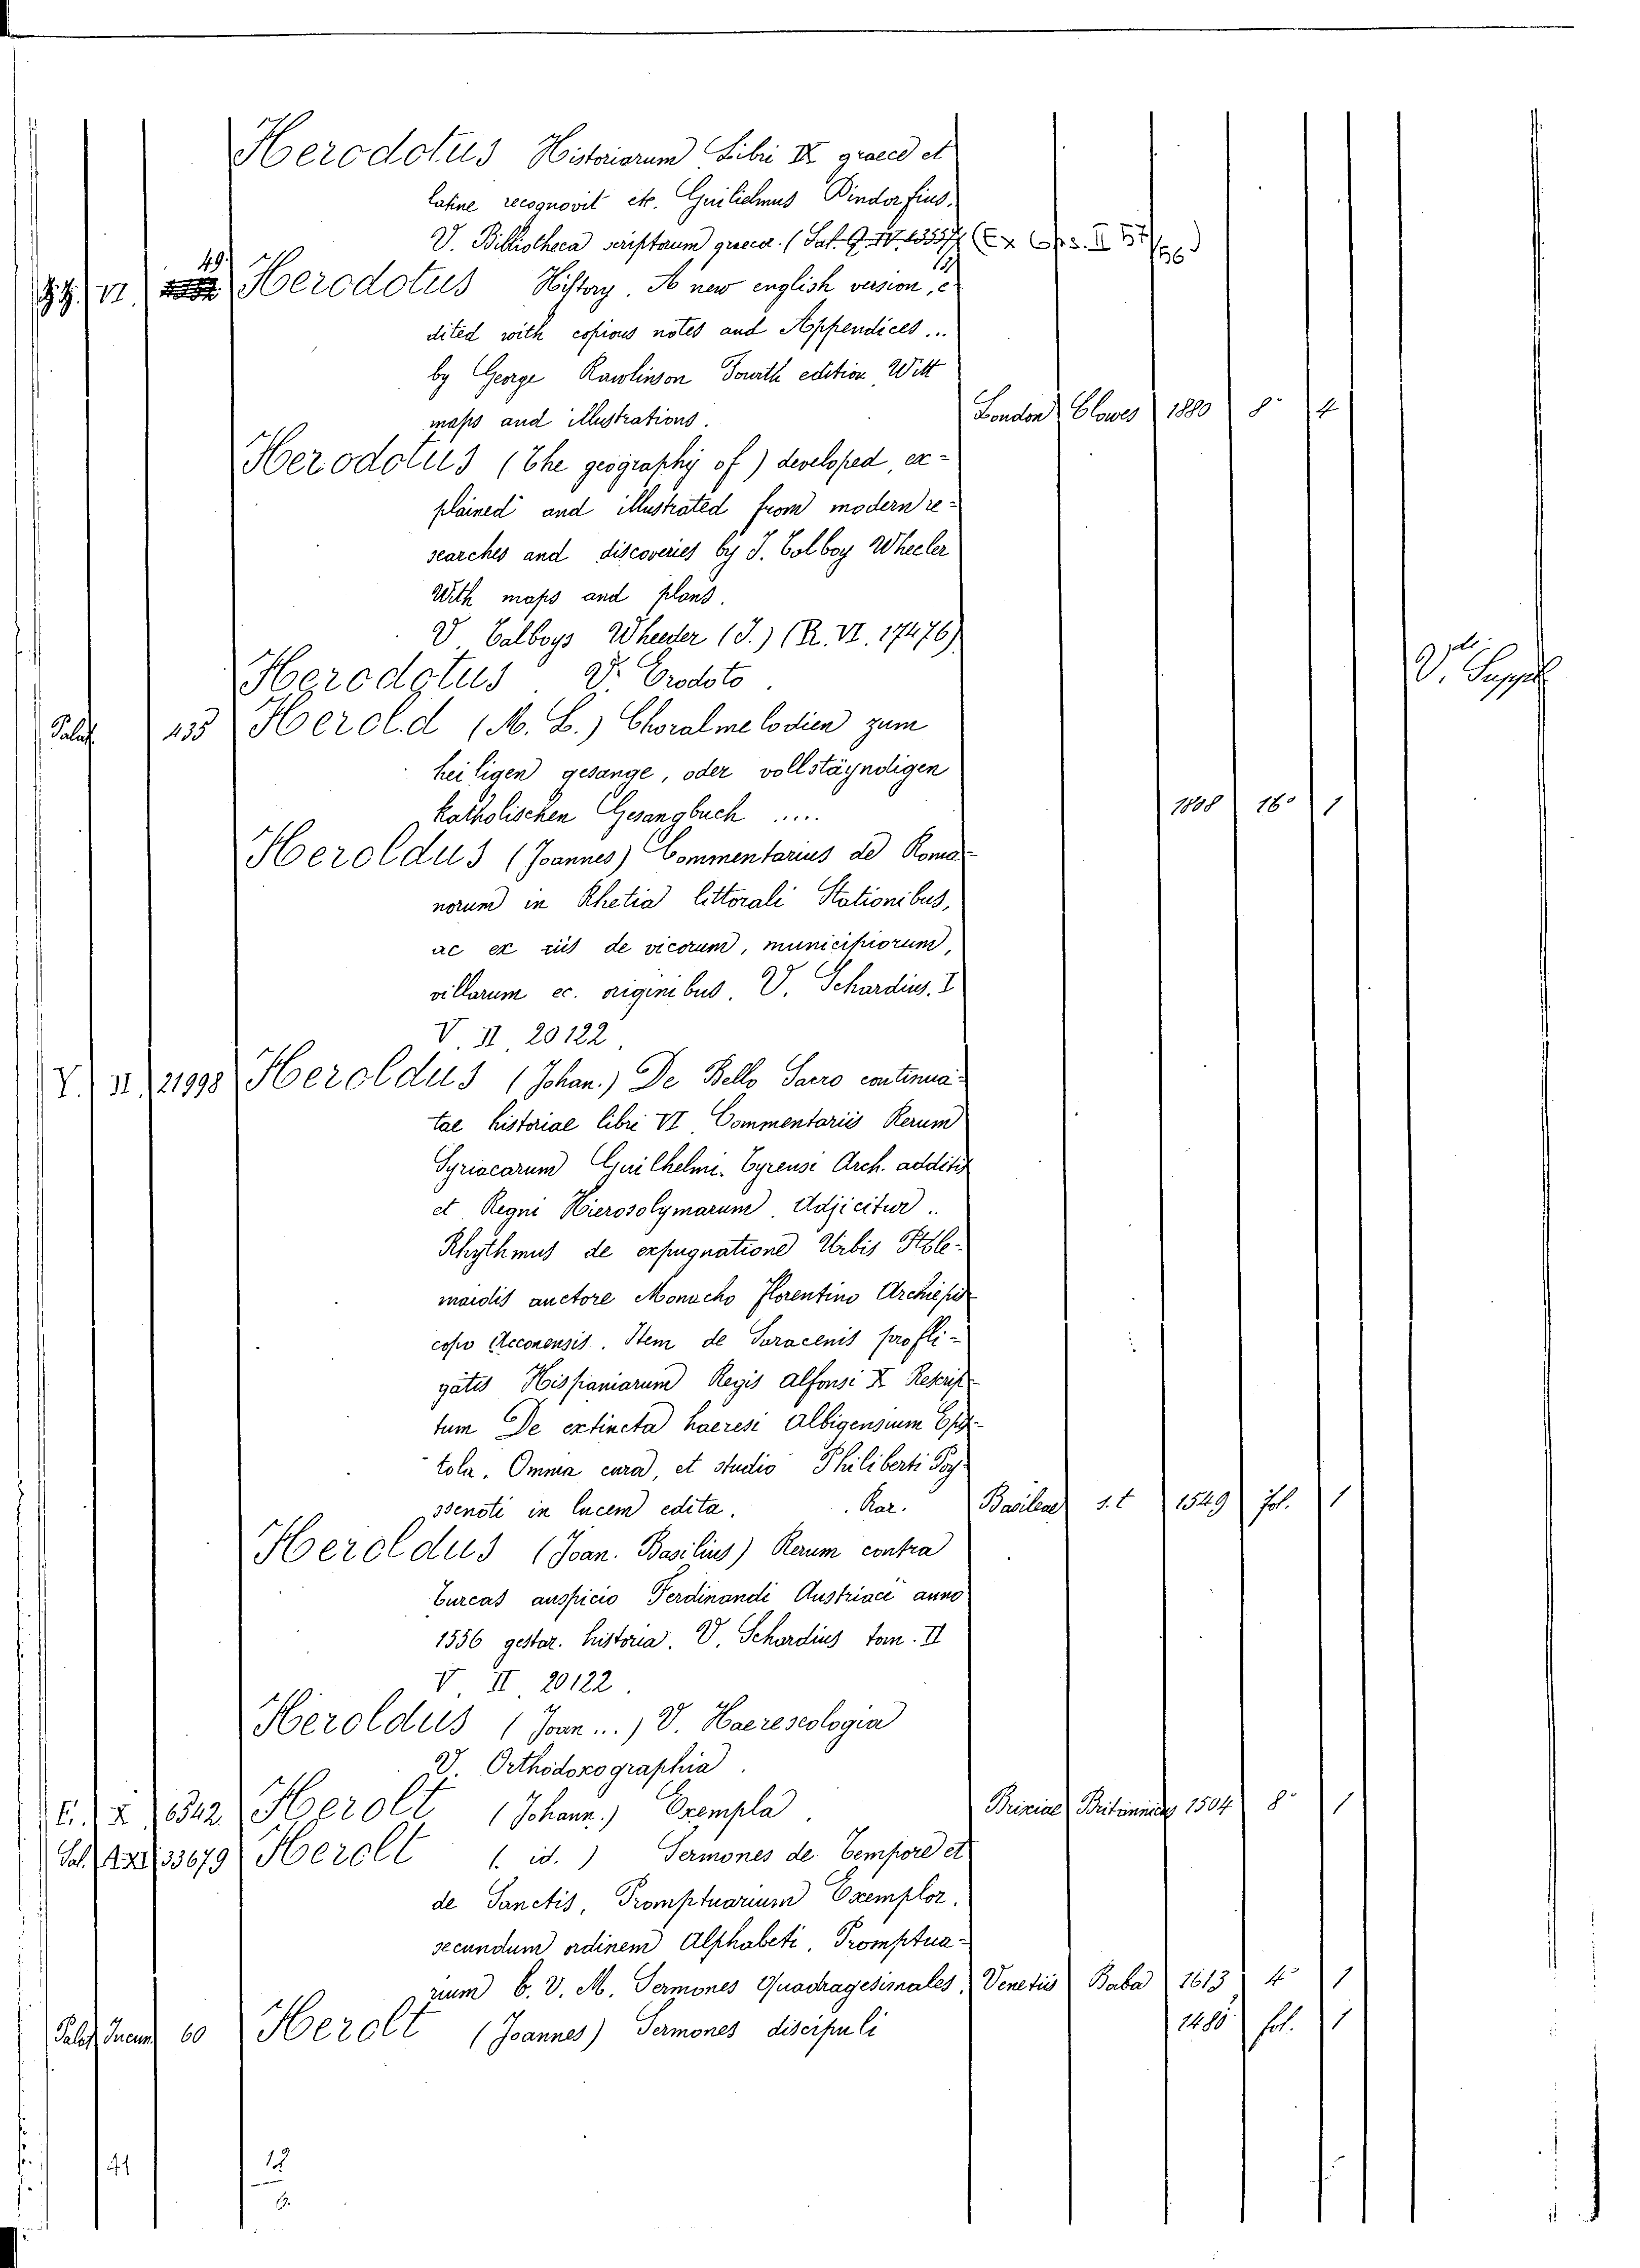 Herodotus Historiarum Libri IX graece et
latine recognovit etc. Guilielmus Dindorfius.
V. Bibliotheca scriptorum graecor. (Sal. Q. IV. 13557) (Ex Cps. II 57/56)
49. VI Herodotus History. A new english version, e-
dited with copious notes and Appendices...
by George Rawlinson Fourth edition Witt
maps and illustrations. London Clowes 1880 8° 4
Herodotus (The geography of) developed, ex-
plained and illustrated from modern re-
searches and discoveries by J. Colboy Wheeler
With maps and plans.
V. Talboys Wheeler (J.) (R. VI. 17476)
Herodotus. V. Erodoto. V. Suppl
Palat. 435 Herold (M. L.) Choralmelodien zum
heiligen gesange, oder vollstäyndigen
katholischen Gesangbuch ..... 1808 16° 1
Heroldus (Joannes) Commentarius de Roma-
norum in Rhetia littorali Stationibus,
ac ex iis de vicorum, municipiorum,
villarum ec. originibus. V. Schardius. I
V. II. 20122.
V. II. 21998 Heroldus (Johan.) De Bello Sacro continua-
tae historiae libri VI. Commentariis Rerum
Syriacarum Guilhelmi Tyrensi Arch. additis
et Regni Hierosolymarum. Adjicitur..
Rhythmus de expugnatione Urbis Ptole-
maidis auctore Monacho florentino Archiepis
copo Acconensis. Item de Saracenis profli-
gatis Hispaniarum Regis alfonsi X Rescrip-
tum De extincta haeresi albigensium Epis-
tola. Omnia cura, et studio Philiberti Poy-
ssenoti in lucem edita. Rar. Basileae s.t 1549 fol. 1
Heroldus (Joan. Basilius) Rerum contra
Turcas auspicio Ferdinandi Austriaci anno
1556 gestar. historia. V. Schardius tom. II
V. II. 20122.
Heroldus (Joan...) V. Haereseologia
V. Orthodoxographia.
E. X 6342 Herolt (Johann.) Exempla. Brixiae Britannicus 1504 8° 1
Sal. XXI 33679 Herolt (id.) Sermones de Tempore et
de Sanctis, Promptuarium Exemplor.
secundum ordinem Alphabeti. Promptua-
rium B. V. M. Sermones Quadragesimales. Venetiis Baba 1613 4° 1
Palat Incun 60 Herolt (Joannes) Sermones discipuli 1480 fol. 1
41 12
6.